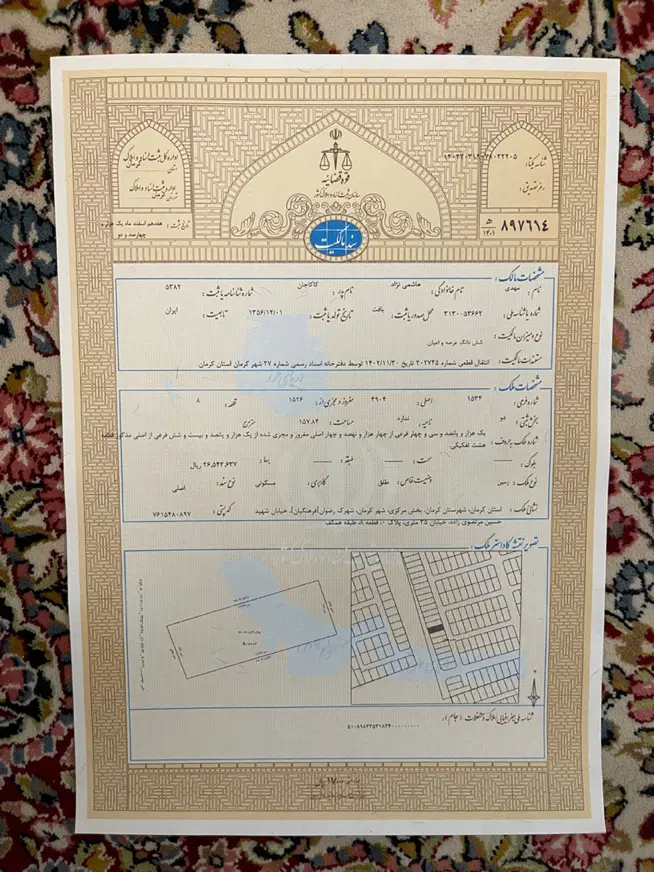 قوه قضائیه
سازمان ثبت اسناد و املاک کشور
اداره کل ثبت اسناد و املاک
استان کرمان
اداره ثبت اسناد و املاک
شهرستان کرمان
تاریخ ثبت : هفدهم اسفند ماه یک هزار و
چهارصد و دو
شناسه یکتا :
رمز تصدیق :
۸۹۷۶۱۴
۱۴۰۱
سند مالکیت
مشخصات مالک :
نام : مهدی نام خانوادگی : هاشمی نژاد نام پدر : کاکاجان شماره شناسنامه یا ثبت : ۵۳۸۲
شماره یا شناسه ملی : ۳۱۳۰۰۵۳۶۶۲ محل صدور یا ثبت : بافت تاریخ تولد یا ثبت : ۱۳۵۶/۱۲/۰۱ تابعیت : ایران
نوع و میزان مالکیت : شش دانگ عرصه و اعیان
مستندات مالکیت : انتقال قطعی شماره ۲۰۲۷۴۵ تاریخ ۱۴۰۲/۱۱/۳۰ توسط دفترخانه اسناد رسمی شماره ۲۷ شهر کرمان استان کرمان
مشخصات ملک :
شماره فرعی : ۱۵۳۴ اصلی : ۴۹۰۴ مفروز و مجزی از : ۱۵۲۶ قطعه : ۸
بخش ثبتی : دو ناحیه : ندارد مساحت : ۱۵۷.۸۴ مترمربع
شماره ملک به حروف : یک هزار و پانصد و سی و چهار فرعی از چهار هزار و نهصد و چهار اصلی مفروز و مجزی شده از یک هزار و پانصد و بیست و شش فرعی از اصلی مذکور قطعه
هشت تفکیکی
بلوک : سمت : طبقه : بها : ۲۶,۵۴۲,۶۳۷ ریال
نوع ملک : زمین وضعیت خاص : طلق کاربری : مسکونی نوع سند : اصلی
نشانی ملک : استان کرمان، شهرستان کرمان، بخش مرکزی، شهر کرمان، شهرک رضوان(فرهنگیان)، خیابان شهید
حسین مرتضوی زاده، خیابان ۲۵ متری، پلاک ۰، قطعه ۸، طبقه همکف
کدپستی : ۷۶۱۵۴۸۰۸۹۷
تصویر نقشه کاداستر ملک :
شناسه ملی جغرافیایی املاک و مستغلات ( جام ) :